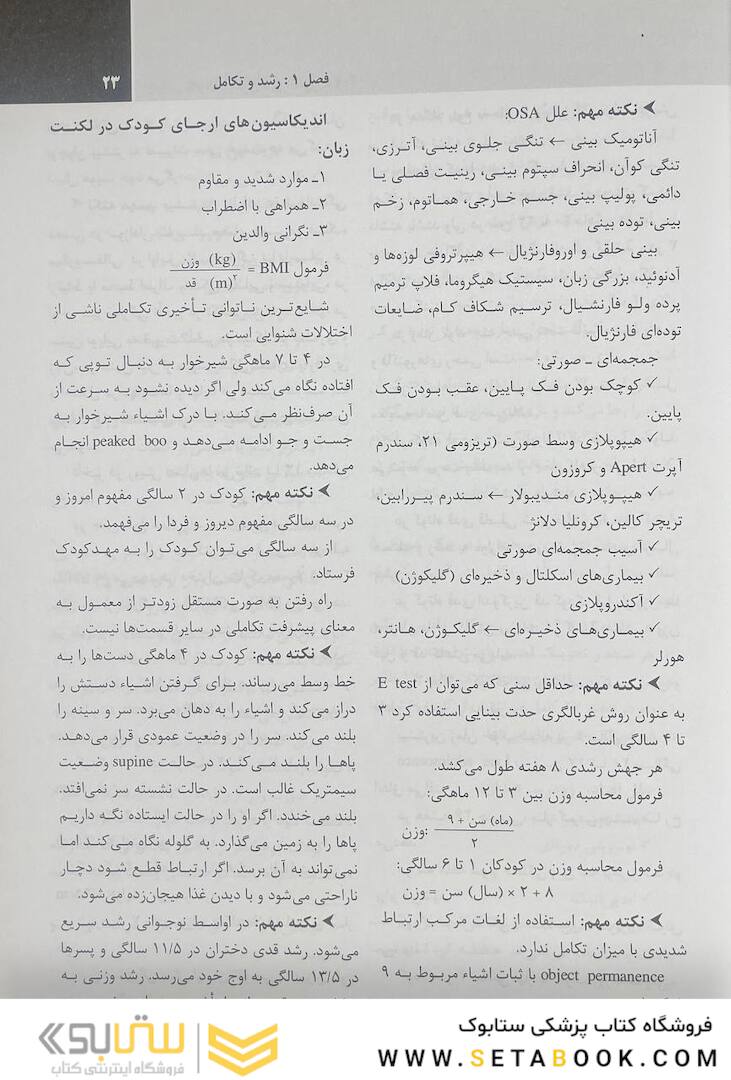 فصل ۱ : رشد و تکامل ۲۳
➤ نکته مهم: علل OSA:
آناتومیک بینی ← تنگی جلوی بینی، آترزی،
تنگی کوآن، انحراف سپتوم بینی، رینیت فصلی یا
دائمی، پولیپ بینی، جسم خارجی، هماتوم، زخم
بینی، توده بینی
بینی حلقی و اوروفارنژیال ← هیپرتروفی لوزه‌ها و
آدنوئید، بزرگی زبان، سیستیک هیگروما، فلاپ ترمیم
پرده ولو فارنشیال، ترسیم شکاف کام، ضایعات
توده‌ای فارنژیال.
جمجمه‌ای ـ صورتی:
✓ کوچک بودن فک پایین، عقب بودن فک
پایین.
✓ هیپوپلازی وسط صورت (تریزومی ۲۱، سندرم
آپرت Apert و کروزون
✓ هیپوپلازی مندیبولار ← سندرم پیررابین،
تریچر کالین، کرونلیا دلانژ
✓ آسیب جمجمه‌ای صورتی
✓ بیماری‌های اسکلتال و ذخیره‌ای (گلیکوژن)
✓ آکندروپلازی
✓ بیماری‌های ذخیره‌ای ← گلیکوژن، هانتر،
هورلر
➤ نکته مهم: حداقل سنی که می‌توان از E test
به عنوان روش غربالگری حدت بینایی استفاده کرد ۳
تا ۴ سالگی است.
هر جهش رشدی ۸ هفته طول می‌کشد.
فرمول محاسبه وزن بین ۳ تا ۱۲ ماهگی:
(ماه) سن + ۹
وزن:
۲
فرمول محاسبه وزن در کودکان ۱ تا ۶ سالگی:
۸ + ۲ × (سال) سن = وزن
➤ نکته مهم: استفاده از لغات مرکب ارتباط
شدیدی با میزان تکامل ندارد.
object permanence با ثبات اشیاء مربوط به ۹
اندیکاسیون‌های ارجای کودک در لکنت
زبان:
۱ـ موارد شدید و مقاوم
۲ـ همراهی با اضطراب
۳ـ نگرانی والدین
(kg) وزن
فرمول BMI =
(m)۲ قد
شایع‌ترین ناتوانی تأخیری تکاملی ناشی از
اختلالات شنوایی است.
در ۴ تا ۷ ماهگی شیرخوار به دنبال توپی که
افتاده نگاه می‌کند ولی اگر دیده نشود به سرعت از
آن صرف‌نظر می‌کند. با درک اشیاء شیرخوار به
جست و جو ادامه می‌دهد و peaked boo انجام
می‌دهد.
➤ نکته مهم: کودک در ۲ سالگی مفهوم امروز و
در سه سالگی مفهوم دیروز و فردا را می‌فهمد.
از سه سالگی می‌توان کودک را به مهدکودک
فرستاد.
راه رفتن به صورت مستقل زودتر از معمول به
معنای پیشرفت تکاملی در سایر قسمت‌ها نیست.
➤ نکته مهم: کودک در ۴ ماهگی دست‌ها را به
خط وسط می‌رساند. برای گرفتن اشیاء دستش را
دراز می‌کند و اشیاء را به دهان می‌برد. سر و سینه را
بلند می‌کند. سر را در وضعیت عمودی قرار می‌دهد.
پاها را بلند می‌کند. در حالت supine وضعیت
سیمتریک غالب است. در حالت نشسته سر نمی‌افتد.
بلند می‌خندد. اگر او را در حالت ایستاده نگه داریم
پاها را به زمین می‌گذارد. به گلوله نگاه می‌کند اما
نمی‌تواند به آن برسد. اگر ارتباط قطع شود دچار
ناراحتی می‌شود و با دیدن غذا هیجان‌زده می‌شود.
➤ نکته مهم: در اواسط نوجوانی رشد سریع
می‌شود. رشد قدی دختران در ۱۱/۵ سالگی و پسرها
در ۱۳/۵ سالگی به اوج خود می‌رسد. رشد وزنی به
فروشگاه کتاب پزشکی ستابوک
WWW.SETABOOK.COM
ستابوک
فروشگاه اینترنتی کتاب